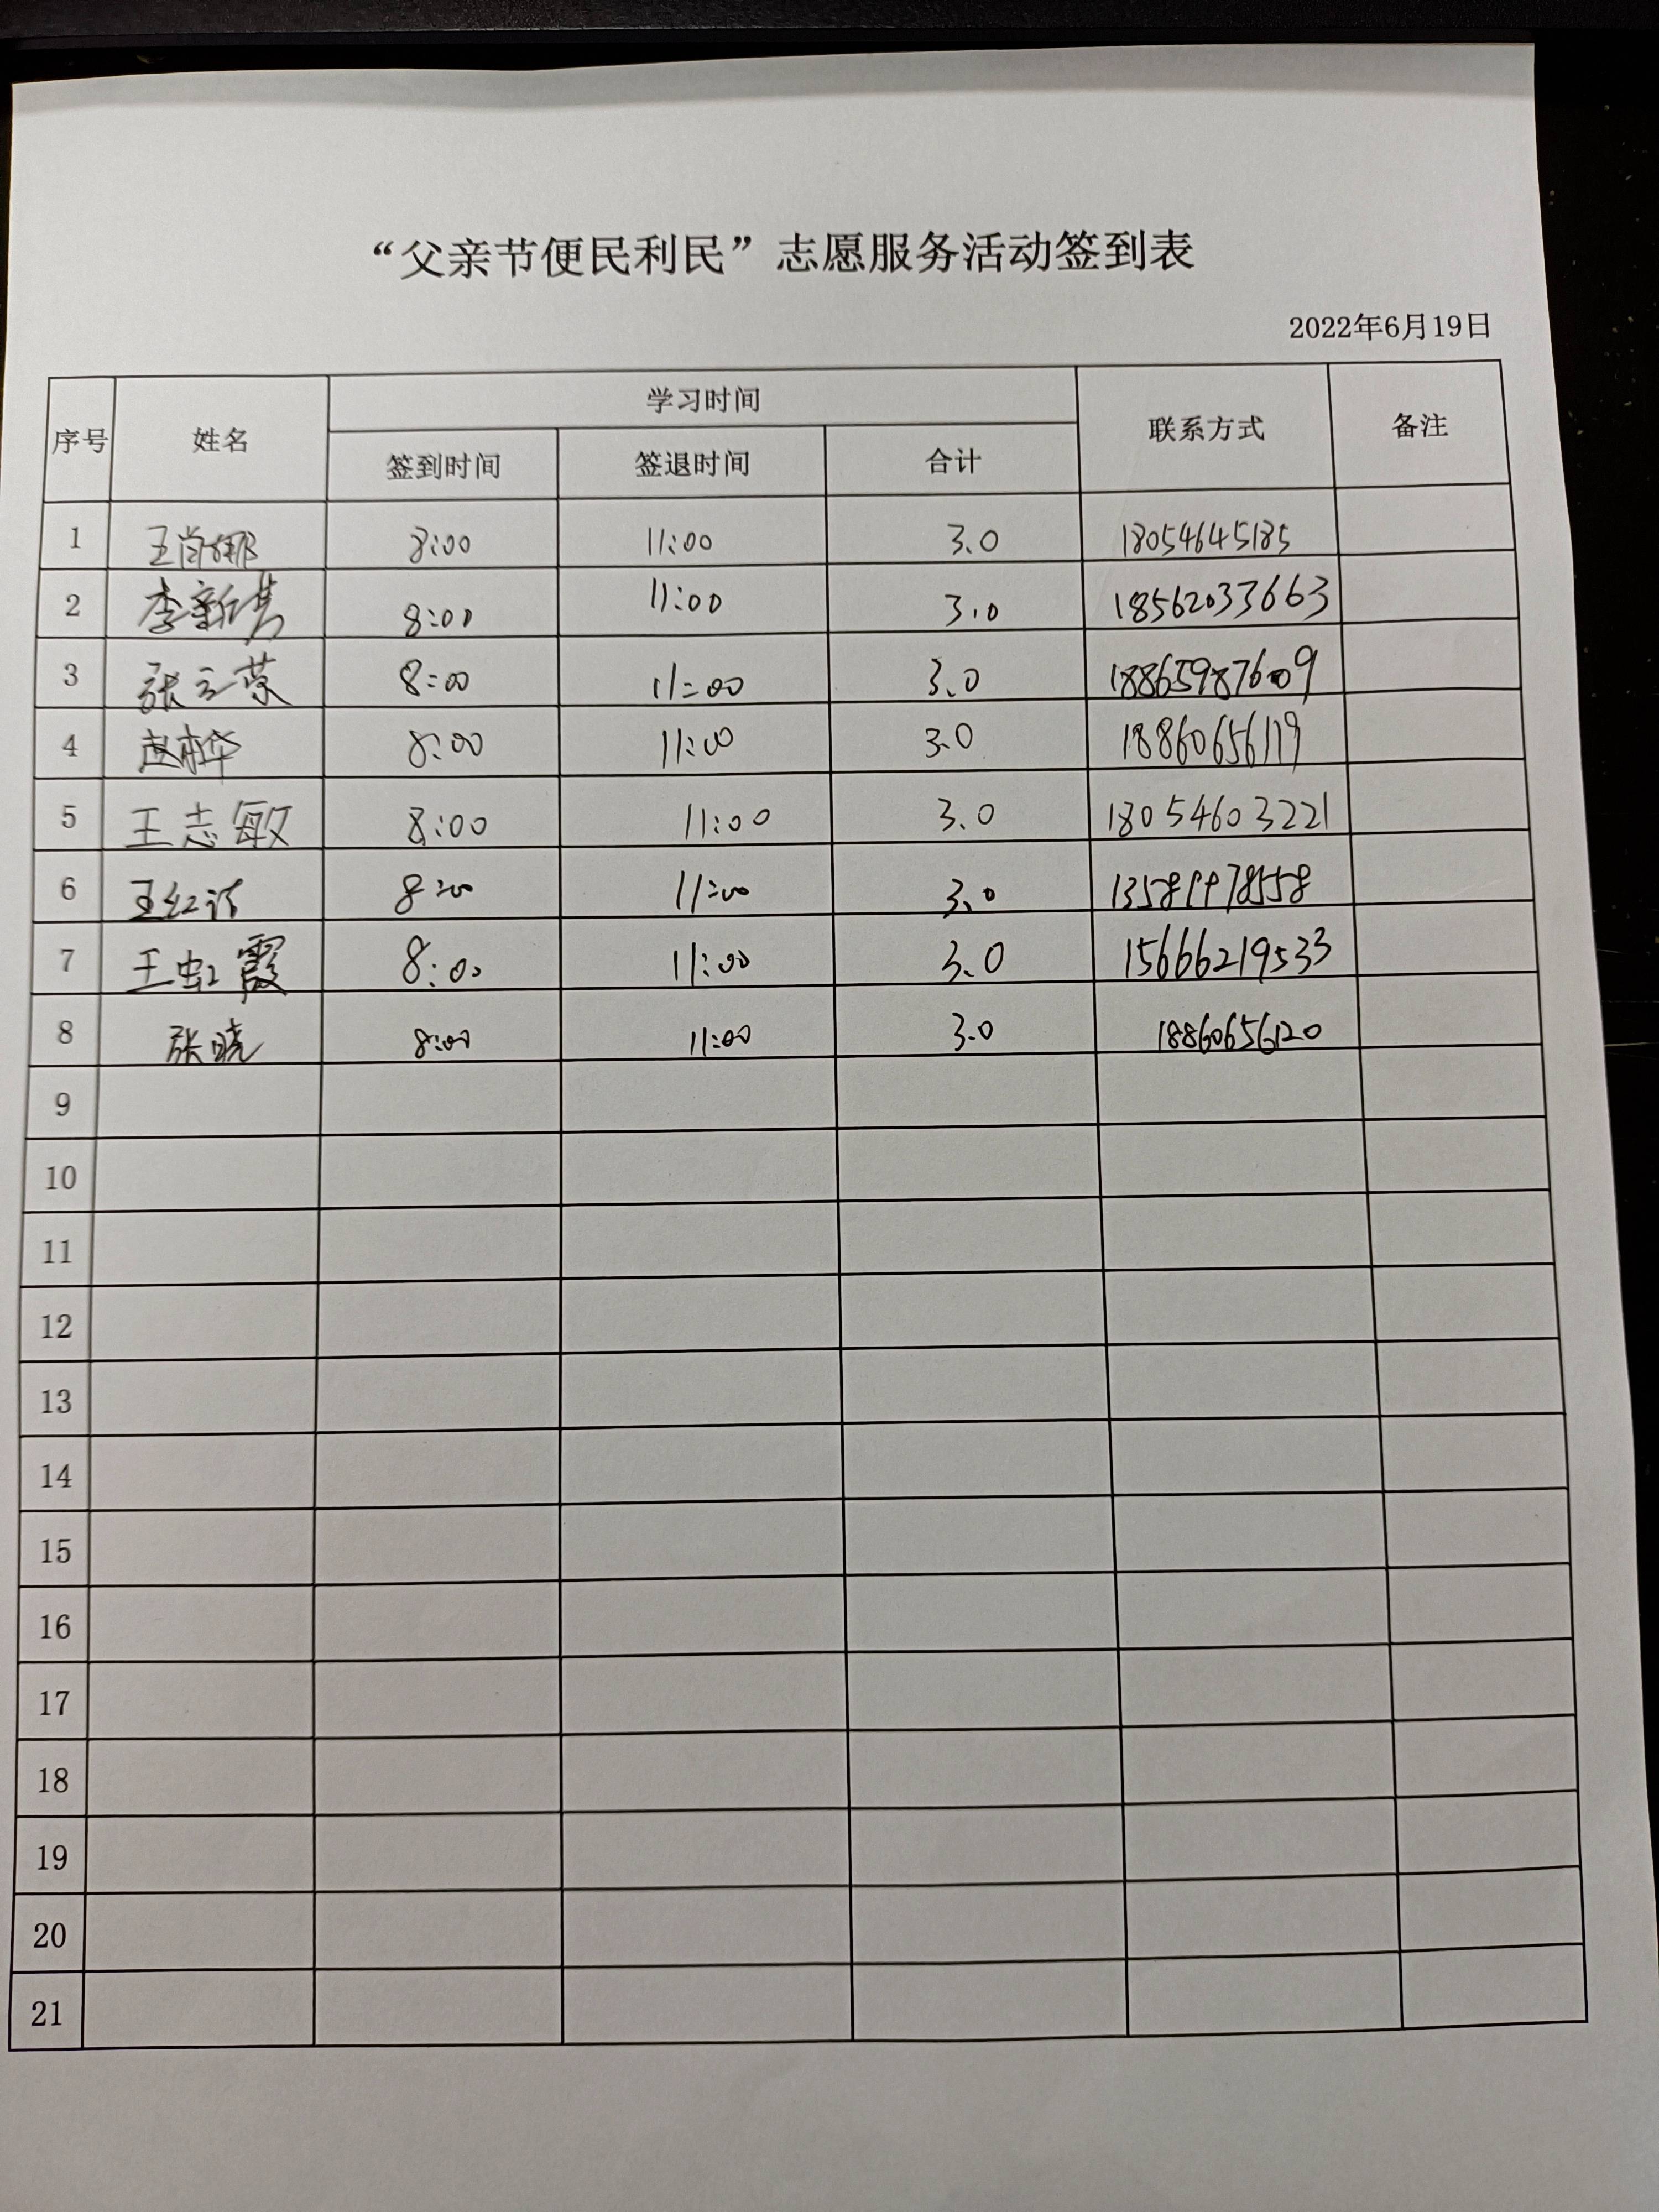 “父亲节便民利民”志愿服务活动签到表
2022年6月19日
序号 姓名 学习时间 联系方式 备注
签到时间 签退时间 合计
1 王肖娜 8:00 11:00 3.0 18054645185
2 李新隽 8:00 11:00 3.0 18562033663
3 张立荣 8:00 11:00 3.0 18865987609
4 赵桦 8:00 11:00 3.0 18860656119
5 王志敏 8:00 11:00 3.0 18054603221
6 王红 8:00 11:00 3.0
7 王虹霞 8:00 11:00 3.0 15666219533
8 张晓 8:00 11:00 3.0 18860656120
9
10
11
12
13
14
15
16
17
18
19
20
21